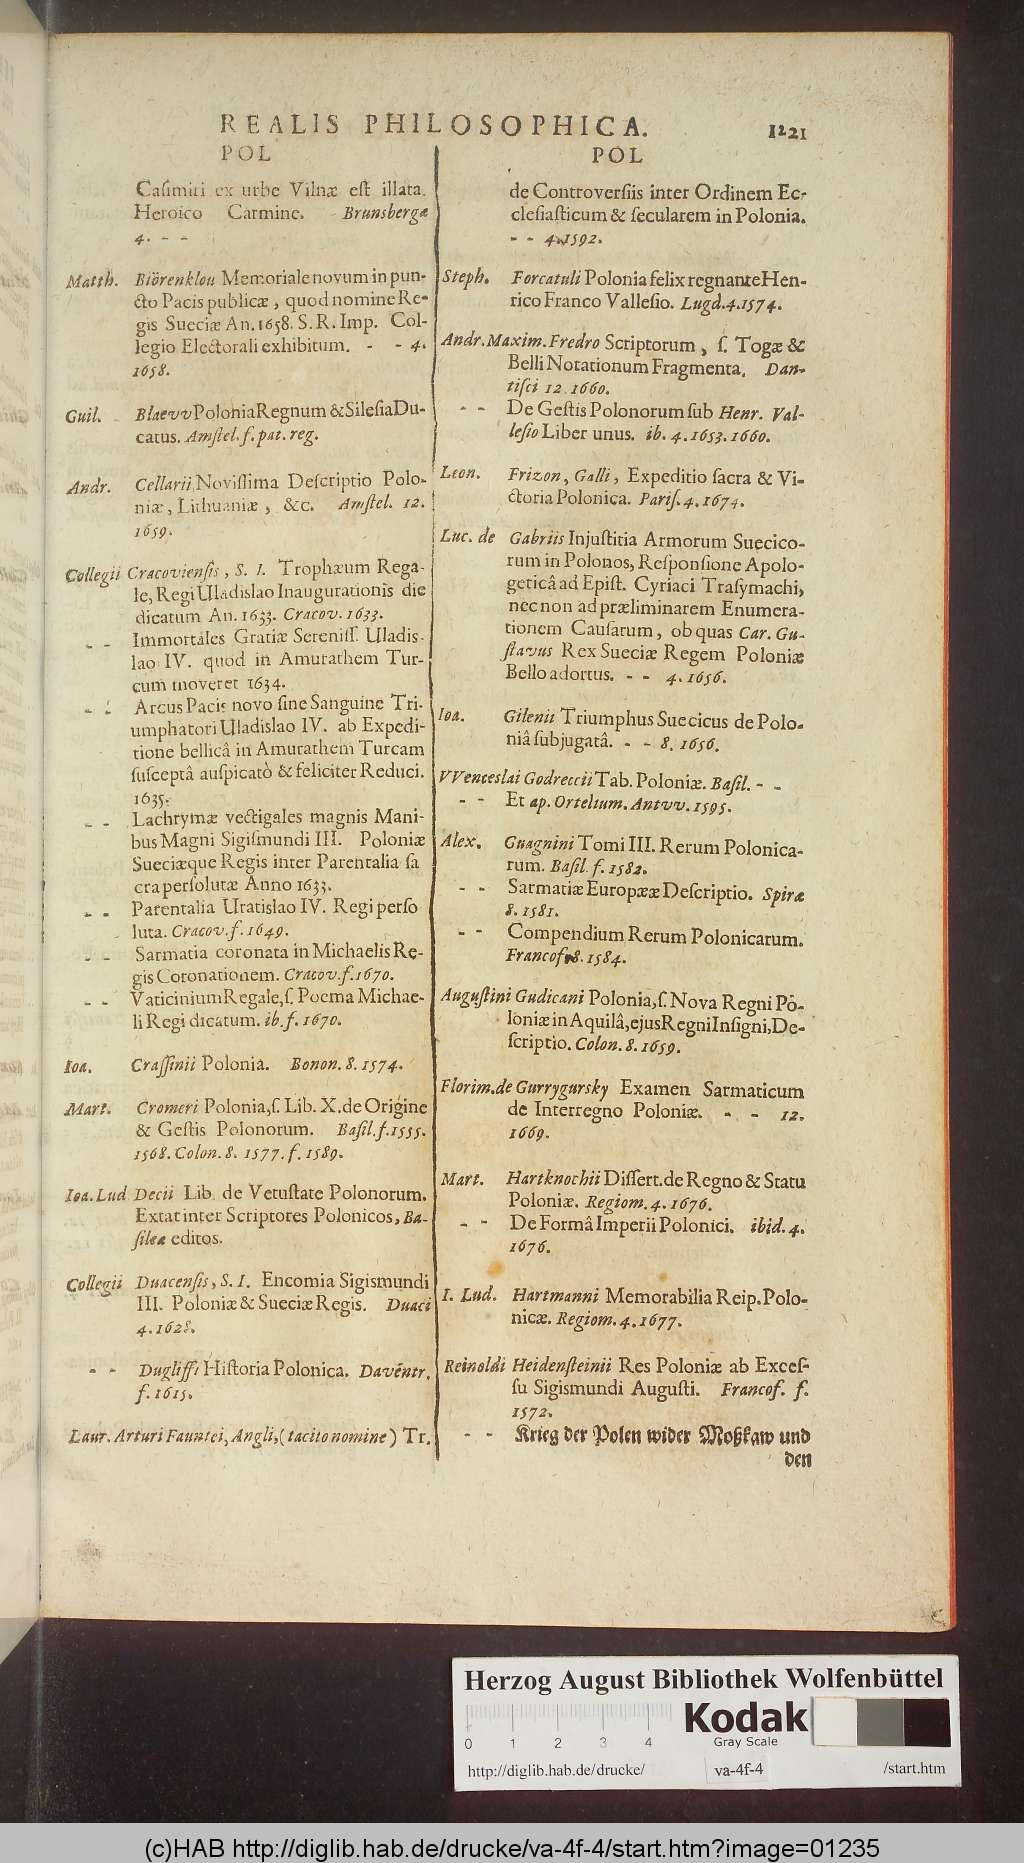 REALIS PHILOSOPHICA. 1221
POL
Casimiri ex urbe Vilnæ est illata.
Heroico Carmine. Brunsbergæ
4. - -
Matth. Biörenklou Memoriale novum in pun-
cto Pacis publicæ, quod nomine Re-
gis Sueciæ An. 1658. S. R. Imp. Col-
legio Electorali exhibitum. - - 4.
1658.
Guil. Blaevv Polonia Regnum & Silesia Du-
catus. Amstel. f. pat. reg.
Andr. Cellarii Novissima Descriptio Polo-
niæ, Lithuaniæ, &c. Amstel. 12.
1659.
Collegii Cracoviensis, S. I. Trophæum Rega-
le, Regi Uladislao Inaugurationis die
dicatum An. 1633. Cracov. 1633.
- - Immortales Gratiæ Sereniss. Uladis-
lao IV. quod in Amurathem Tur-
cum moveret 1634.
- - Arcus Pacis novo sine Sanguine Tri-
umphatori Uladislao IV. ab Expedi-
tione bellicâ in Amurathem Turcam
susceptâ auspicatò & feliciter Reduci.
1635.
- - Lachrymæ vectigales magnis Mani-
bus Magni Sigismundi III. Poloniæ
Sueciæque Regis inter Parentalia sa
cra persolutæ Anno 1633.
- - Parentalia Uratislao IV. Regi perso
luta. Cracov. f. 1649.
- - Sarmatia coronata in Michaelis Re-
gis Coronationem. Cracov. f. 1670.
- - Vaticinium Regale, s. Poema Michae-
li Regi dicatum. ib. f. 1670.
Ioa. Crassinii Polonia. Bonon. 8. 1574.
Mart. Cromeri Polonia, s. Lib. X. de Origine
& Gestis Polonorum. Basil. f. 1555.
1568. Colon. 8. 1577. f. 1589.
Ioa. Lud Decii Lib. de Vetustate Polonorum.
Extat inter Scriptores Polonicos, Ba-
sileæ editos.
Collegii Duacensis, S. I. Encomia Sigismundi
III. Poloniæ & Sueciæ Regis. Duaci
4. 1628.
- - Duglissi Historia Polonica. Davéntr.
f. 1615.
Laur. Arturi Fauntei, Angli, (tacito nomine) Tr.
POL
de Controversiis inter Ordinem Ec-
clesiasticum & secularem in Polonia.
- - 4. 1592.
Steph. Forcatuli Polonia felix regnante Hen-
rico Franco Vallesio. Lugd. 4. 1574.
Andr. Maxim. Fredro Scriptorum, s. Togæ &
Belli Notationum Fragmenta. Dan-
tisci 12. 1660.
- - De Gestis Polonorum sub Henr. Val-
lesio Liber unus. ib. 4. 1653. 1660.
Leon. Frizon, Galli, Expeditio sacra & Vi-
ctoria Polonica. Paris. 4. 1674.
Luc. de Gabriis Injustitia Armorum Suecico-
rum in Polonos, Responsione Apolo-
geticâ ad Epist. Cyriaci Trasymachi,
nec non ad præliminarem Enumera-
tionem Causarum, ob quas Car. Gu-
stavus Rex Sueciæ Regem Poloniæ
Bello adortus. - - 4. 1656.
Ioa. Gilenii Triumphus Suecicus de Polo-
niâ subjugatâ. - - 8. 1656.
VVenceslai Godreccii Tab. Poloniæ. Basil. - -
- - Et ap. Ortelium. Antvv. 1595.
Alex. Guagnini Tomi III. Rerum Polonica-
rum. Basil. f. 1582.
- - Sarmatiæ Europææ Descriptio. Spiræ
8. 1581.
- - Compendium Rerum Polonicarum.
Francof. 8. 1584.
Augustini Gudicani Polonia, s. Nova Regni Po-
loniæ in Aquilâ, ejus Regni Insigni, De-
scriptio. Colon. 8. 1659.
Florim. de Gurrygursky Examen Sarmaticum
de Interregno Poloniæ. - - 12.
1669.
Mart. Hartknochii Dissert. de Regno & Statu
Poloniæ. Regiom. 4. 1676.
- - De Formâ Imperii Polonici. ibid. 4.
1676.
I. Lud. Hartmanni Memorabilia Reip. Polo-
nicæ. Regiom. 4. 1677.
Reinoldi Heidensteinii Res Poloniæ ab Exces-
su Sigismundi Augusti. Francof. f.
1572.
- - Krieg der Polen wider Moßkaw und
den
Herzog August Bibliothek Wolfenbüttel
0 1 2 3 4
Kodak
Gray Scale
http://diglib.hab.de/drucke/ va-4f-4 /start.htm
(c)HAB http://diglib.hab.de/drucke/va-4f-4/start.htm?image=01235